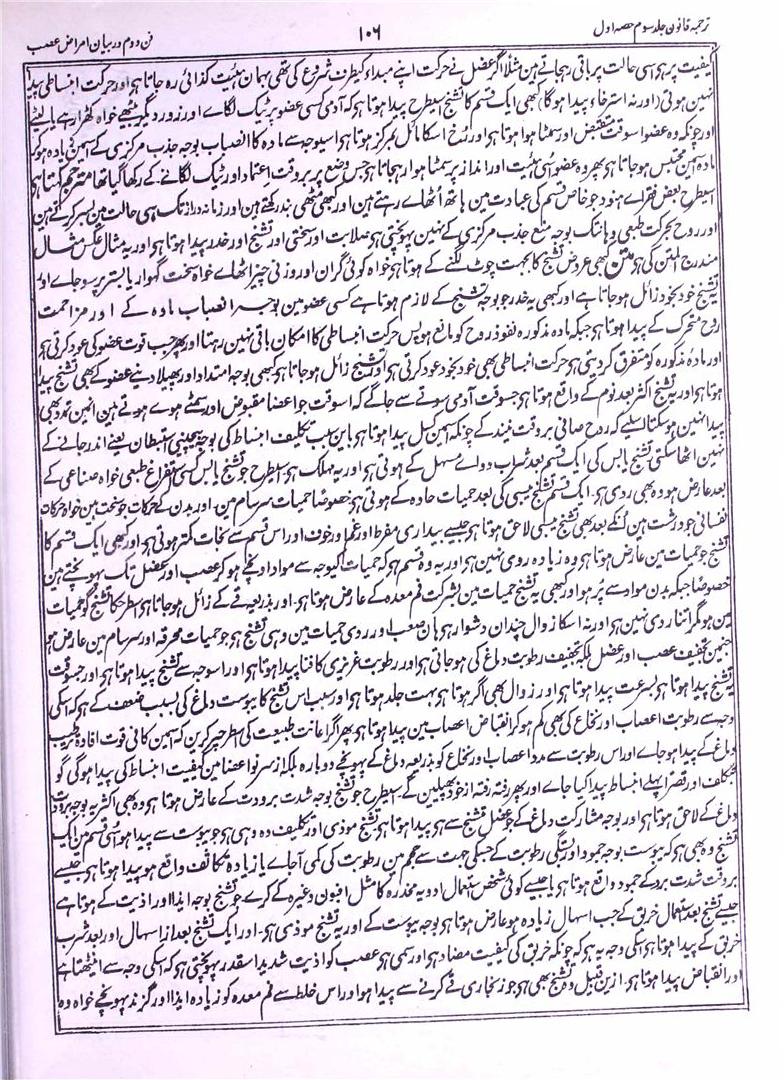 ترجمہ قانون جلد سوم حصہ اول
۱۰۶
فن دوم در بیان امراض عصب
کیفیت پر ہو اسی حالت پر باقی رہجاتے ہین مثلاً اگر عضل نے حرکت اپنے مبداء کیطرف شروع کی تھی یہان ہیئت کذائی رہ جاتا ہے اور حرکت انبساطی پیدا
نہین ہوتی (اور نہ استرخاء پیدا ہوگا) کبھی ایک قسم کا تشنج اسطرح پیدا ہوتا ہے کہ آدمی کسی عضو پر ٹیک لگاے اور زور دیکر بیٹھے خواہ کھڑا رہے یا لیٹے
اور چونکہ وہ عضو اسوقت منقبض اور سمٹا ہوا ہوتا ہے اور رُخ اسکا مائل بمرکز ہوتا ہے اسیوجہ سے مادہ کا انصباب بوجہ جذب مرکزی کے اسمین زیادہ ہو کر
مادہ اسمین محتبس ہو جاتا ہے پھر وہ عضو اسی ہیئت اور انداز پر سمٹا ہوا رہجاتا ہے جس وضع پر بروقت اعتماد اور ٹیک لگانے کے رکھا گیا تھا
اسیطرح بعض فقراے ہنود جو خاص قسم کی عبادت مین ہاتھ اُٹھاے رہتے ہین اور کبھی مٹھی بند رکھتے ہین اور زمانہ دراز تک اسی حالت مین بسر کرتے ہین
اور روح بحرکت طبعی وہانتک بوجہ منع جذب مرکزی کے نہین پہونچتی ہے صلابت اور سختی اور تشنج اور خدر پیدا ہوتا ہے اور یہ مثال عکس مثال
مندرج المتن کی ہے متن کبھی عروض تشنج کا بجہت چوٹ لگنے کے ہوتا ہے خواہ کوئی گران اور وزنی چیز اٹھاے خواہ سخت گہوارہ یا بستر پر سو جاے اور
یہ تشنج خود بخود زائل ہو جاتا ہے اور کبھی یہ خدر جو بوجہ تشنج کے لازم ہوتا ہے کسی عضو مین بوجہ انصباب مادہ کے اور مزاحمت
روح متحرک کے پیدا ہوتا ہے جبکہ مادہ مذکورہ نفوذ روح کو مانع ہو پس حرکت انبساطی کا امکان باقی نہین رہتا اور پھر جب قوت عضو کی عود کرتی ہے
اور مادہ مذکورہ کو متفرق کردیتی ہے حرکت انبساطی بھی خود بخود عود کرتی ہے اور تشنج زائل ہو جاتا ہے کبھی بوجہ امتداد اور پھیلا دینے عضو کے بھی تشنج پیدا
ہوتا ہے اور یہ تشنج اکثر بعد نوم کے واقع ہوتا ہے جسوقت آدمی سوتے سے جاگے کہ اسوقت جو اعضا مقبوض اور سمٹے ہوے ہوتے ہین انمین تمدد بھی
پیدا نہین ہو سکتا اسلیے کہ روح صافی بروقت نیند کے چونکہ اسمین کسل پیدا ہوتا ہے باین سبب تکلیف انبساط کی بوجہ استبطان یعنے اندر جانے کے
نہین اٹھا سکتی تشنج یابس کی ایک قسم بعد شراب دواے مسہل کے ہوتی ہے اور یہ مہلک ہے اسیطرح جو تشنج یابس کسی استفراغ طبعی خواہ صناعی کے
بعد عارض ہو وہ بھی ردی ہے۔ ایک قسم تشنج یبسی کی بعد حمیات حادہ کے ہوتی ہے خصوصاً حمیات سرسام مین۔ اور بدن کے حرکات جو سخت ہین خواہ حرکات
نفسانی جو درشت ہین انکے بعد بھی تشنج یبسی لاحق ہوتا ہے جیسے بیداری مفرط اور غم اور خوف اور اس قسم سے نجات کمتر ہوتی ہے اور کبھی ایک قسم کا
تشنج جو حمیات مین عارض ہوتا ہے وہ زیادہ ردی نہین ہے اور یہ وہ قسم ہے کہ حمیات کیوجہ سے مواد اونچے ہو کر عصب اور عضل تک پہونچتے ہین
خصوصاً جبکہ بدن مواد سے پُر ہو اور کبھی یہ تشنج حمیات مین بشرکت فم معدہ کے عارض ہوتا ہے۔ اور بذریعہ قے کے زائل ہو جاتا ہے اسطرح کا تشنج گو حمیات
مین ہو مگر اتنا ردی نہین ہے اور نہ اسکا زوال چندان دشوار ہے ہان صعب اور ردی حمیات مین وہی تشنج ہے جو حمیات محرقہ اور سرسام مین عارض ہو
جنمین تجفیف عصب اور عضل بلکہ تجفیف رطوبت دماغ کی ہو جاتی ہے اور رطوبت غریزی کا فنا پیدا ہوتا ہے اور اسوجہ سے تشنج پیدا ہوتا ہے اور جسوقت
یہ تشنج پیدا ہوتا ہے بسرعت پیدا ہوتا ہے اور زوال بھی اگر ہوتا ہے بہت جلد ہوتا ہے اور سبب اس تشنج کا یبوست دماغ کی بسبب ضعف کے ہے کہ اسکی
وجہ سے رطوبت اعصاب اور نخاع کی بھی کم ہو کر انقباض اعصاب مین پیدا ہوتا ہے پھر اگر اعانت طبیعت کی اسطرح پر کرین کہ اسمین کافی قوت افادہ ترطیب
دماغ کے پیدا ہو جاے اور اس رطوبت سے مدد اعصاب اور نخاع کو بذریعہ دماغ کے پہونچے دوبارہ بلکہ از سر نو اعضا مین کیفیت انبساط کی پیدا ہوگی گو
بتکلف اور قصر پہلے انبساط پیدا کیا جاے اور پھر رفتہ رفتہ از خود پھیلین گے اسیطرح جو تشنج بوجہ شدت برودت کے عارض ہوتا ہے وہ بھی اکثر یہ بوجہ برودت
دماغ کے لاحق ہوتا ہے اور بوجہ مشارکت دماغ کے جو عضل تشنج سے ہے پیدا ہوتا ہے تشنج موذی اور تکلیف دہ وہی ہے جو یبوست سے پیدا ہو اسی قسم مین ایک
تشنج وہ بھی ہے کہ یبوست بوجہ جمود اور بستگی رطوبت کے جسکی جہت سے حجم مین رطوبت کی کمی آجاے یا زیادہ تکاثف واقع ہو پیدا ہوتا ہے جیسے
بروقت شدت برد کے جمود واقع ہوتا ہے یا جیسے کوئی شخص استعمال ادویہ مخدرہ کا مثل افیون وغیرہ کے کرے جو تشنج بوجہ ایذا اور اذیت کے ہوتا ہے
جیسے تشنج بعد استعمال خربق کے جب اسہال زیادہ ہو عارض ہوتا ہے بوجہ یبوست کے اور یہ تشنج موذی ہے۔ اور ایک تشنج بعد از اسہال اور بعد شرب
خربق کے پیدا ہوتا ہے اسکی وجہ یہ ہے کہ چونکہ خربق کی کیفیت مضاد ہے اور سمی ہے عصب کو اذیت شدید اسقدر پہونچتی ہے کہ اسکی وجہ سے اینٹھتا ہے
اور انقباض پیدا ہوتا ہے۔ ازین قبیل وہ تشنج بھی ہے جو زنجاری قے کرنے سے پیدا ہو اور اس خلط سے فم معدہ کو زیادہ ایذا اور گزند پہونچے خواہ وہ